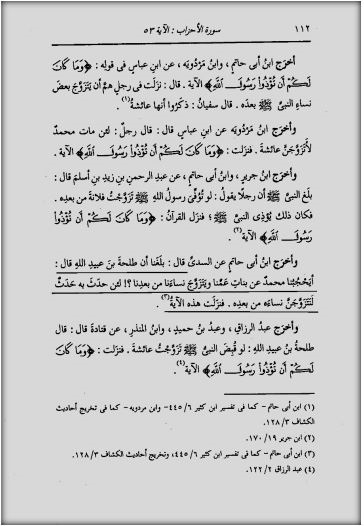 ١١٢ سورة الأحزاب : الآية ٥٣
وأخرَج ابنُ أبى حاتمٍ ، وابنُ مَرْدُويَه ، عن ابنِ عباسٍ فى قولِه : ﴿وَمَا كَانَ
لَكُمْ أَن تُؤْذُوا۟ رَسُولَ ٱللَّهِ﴾ الآية . قال : نزَلَت فى رجلٍ همَّ أن يَتَزوَّجَ بعضَ
نساءِ النبىِّ ﷺ بعدَه . قال سفيانُ : ذكَرُوا أنها عائشةُ(١) .
وأخرَج ابنُ مَرْدُويَه عن ابنِ عباسٍ قال : قال رجلٌ : لئن مات محمدٌ
لأَتَزَوَّجَنَّ عائشةَ . فنزلت : ﴿وَمَا كَانَ لَكُمْ أَن تُؤْذُوا۟ رَسُولَ ٱللَّهِ﴾ الآية .
وأخرَج ابنُ جريرٍ ، وابنُ أبى حاتمٍ ، عن عبدِ الرحمنِ بنِ زيدِ بنِ أسلمَ قال :
بلَغ النبىَّ ﷺ أن رجلًا يقولُ : لو تُوُفِّىَ رسولُ اللهِ ﷺ تزَوَّجتُ فلانةَ من بعدِه .
فكان ذلك يُؤذِى النبىَّ ﷺ ؛ فنزَل القرآنُ : ﴿وَمَا كَانَ لَكُمْ أَن تُؤْذُوا۟
رَسُولَ ٱللَّهِ﴾ الآية(٢) .
وأخرَج ابنُ أبى حاتمٍ عن السدىِّ قال : بلَغَنا أن طلحةَ بنَ عبيدِ اللهِ قال :
أيَحْجُبُنا محمدٌ عن بناتِ عَمِّنا ويَتَزوَّجُ نساءَنا من بعدِنا ؟! لئن حدَث به حَدَثٌ
لنَتَزَوَّجَنَّ نساءَه من بعدِه . فنزَلَت هذه الآيةُ(٣) .
وأخرَج عبدُ الرزاقِ ، وعبدُ بنُ حميدٍ ، وابنُ المنذرِ ، عن قتادةَ قال : قال
طلحةُ بنُ عبيدِ اللهِ : لو قُبِض النبىُّ ﷺ تَزوَّجتُ عائشةَ . فنزَلت : ﴿وَمَا كَانَ
لَكُمْ أَن تُؤْذُوا۟ رَسُولَ ٱللَّهِ﴾ الآية(٤) .
(١) ابن أبى حاتم - كما فى تفسير ابن كثير ٦/ ٤٤٥- وابن مردويه - كما فى تخريج أحاديث
الكشاف ٣/ ١٢٨.
(٢) ابن جرير ١٩/ ١٧٠.
(٣) ابن أبى حاتم - كما فى تفسير ابن كثير ٦/ ٤٤٥، وتخريج أحاديث الكشاف ٣/ ١٢٨.
(٤) عبد الرزاق ٢/ ١٢٢.